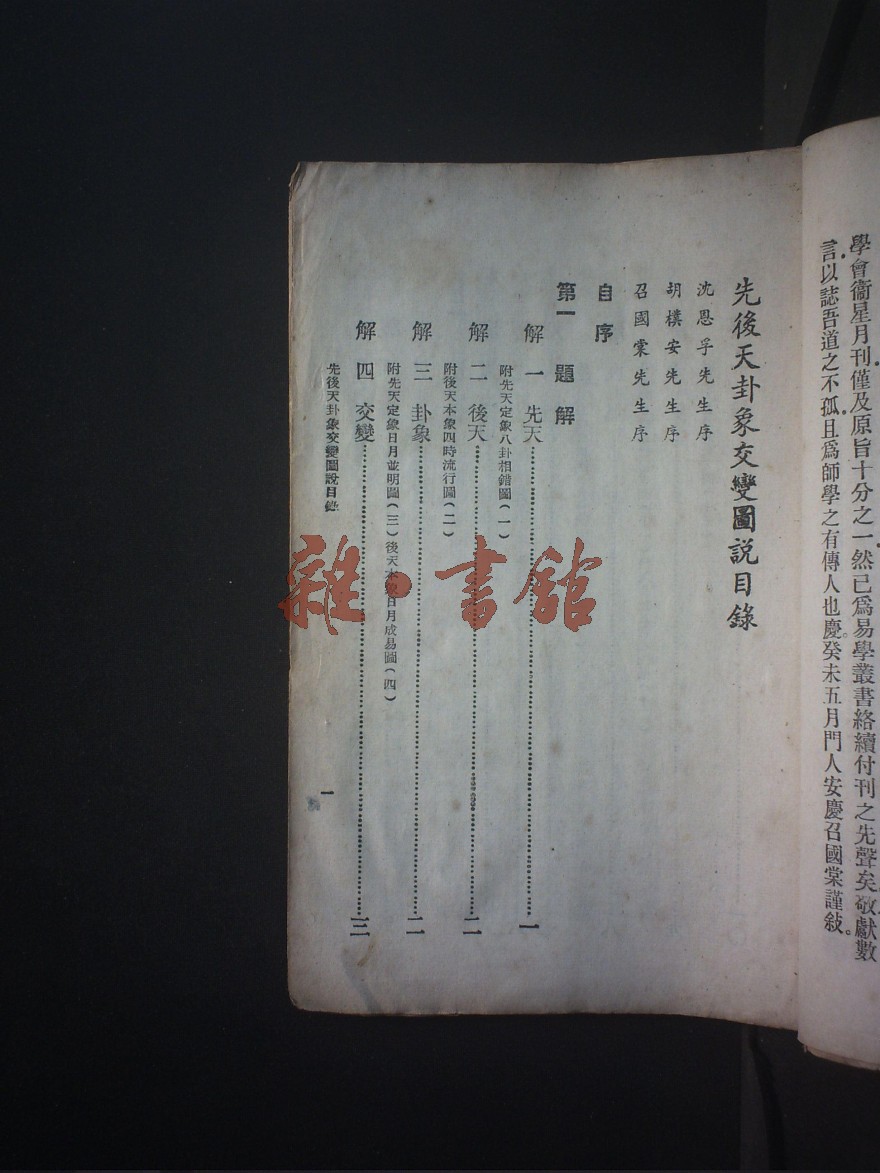 學會衞星月刊僅及原旨十分之一然已爲易學叢書絡續付刊之先聲矣敬獻數
言以誌吾道之不孤且爲師學之有傳人也慶癸未五月門人安慶召國棠謹敍。
先後天卦象交變圖說目錄
沈恩孚先生序
胡樸安先生序
召國棠先生序
自序
第一 題解
解一 先天……一
附先天定象八卦相錯圖(一)
解二 後天……二
附後天本象四時流行圖(二)
解三 卦象……二
附先天定象日月並明圖(三)後天本象日月成易圖(四)
解四 交變……三
先後天卦象交變圖說目錄
一
雜·書館